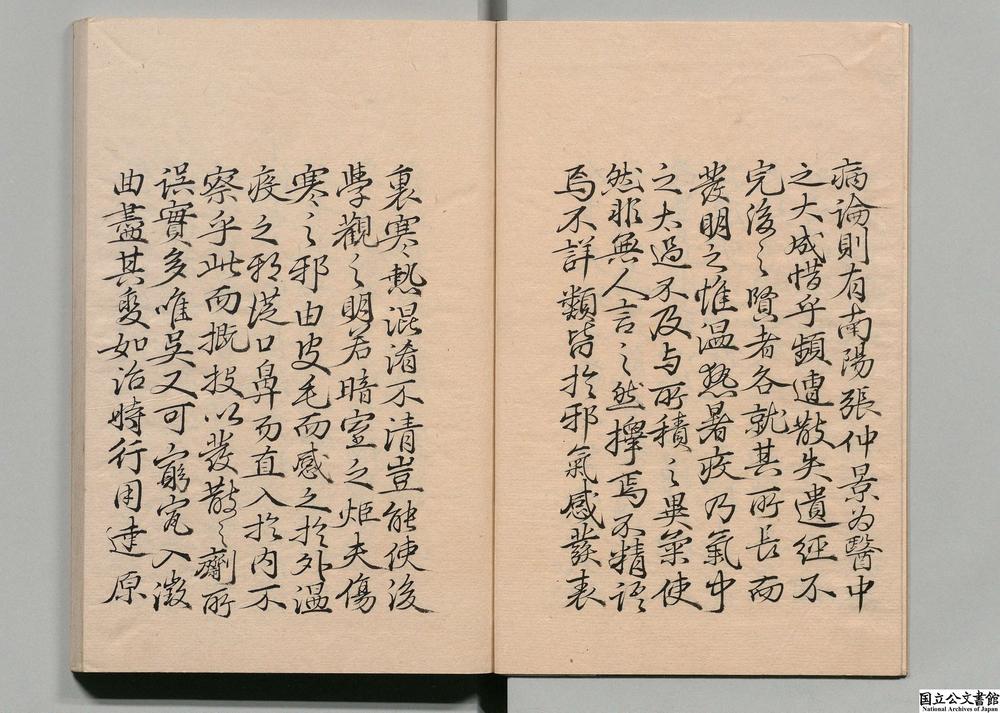 病論則有南陽張仲景為醫中
之大成惜乎頻遭散失遺經不
完後之賢者各就其所長而
發明之惟温熱暑疫乃氣中
之太過不及与所積之異氣使
然非無人言之然擇焉不精語
焉不詳類皆於邪氣感發表
裏寒熱混淆不清豈能使後
學觀之明若暗室之炬夫傷
寒之邪由皮毛而感之於外温
疫之邪從口鼻而直入於内不
察乎此而概投以發散之劑所
誤實多唯吳又可窮究入微
曲盡其變如治時行用達原
国立公文書館
National Archives of Japan